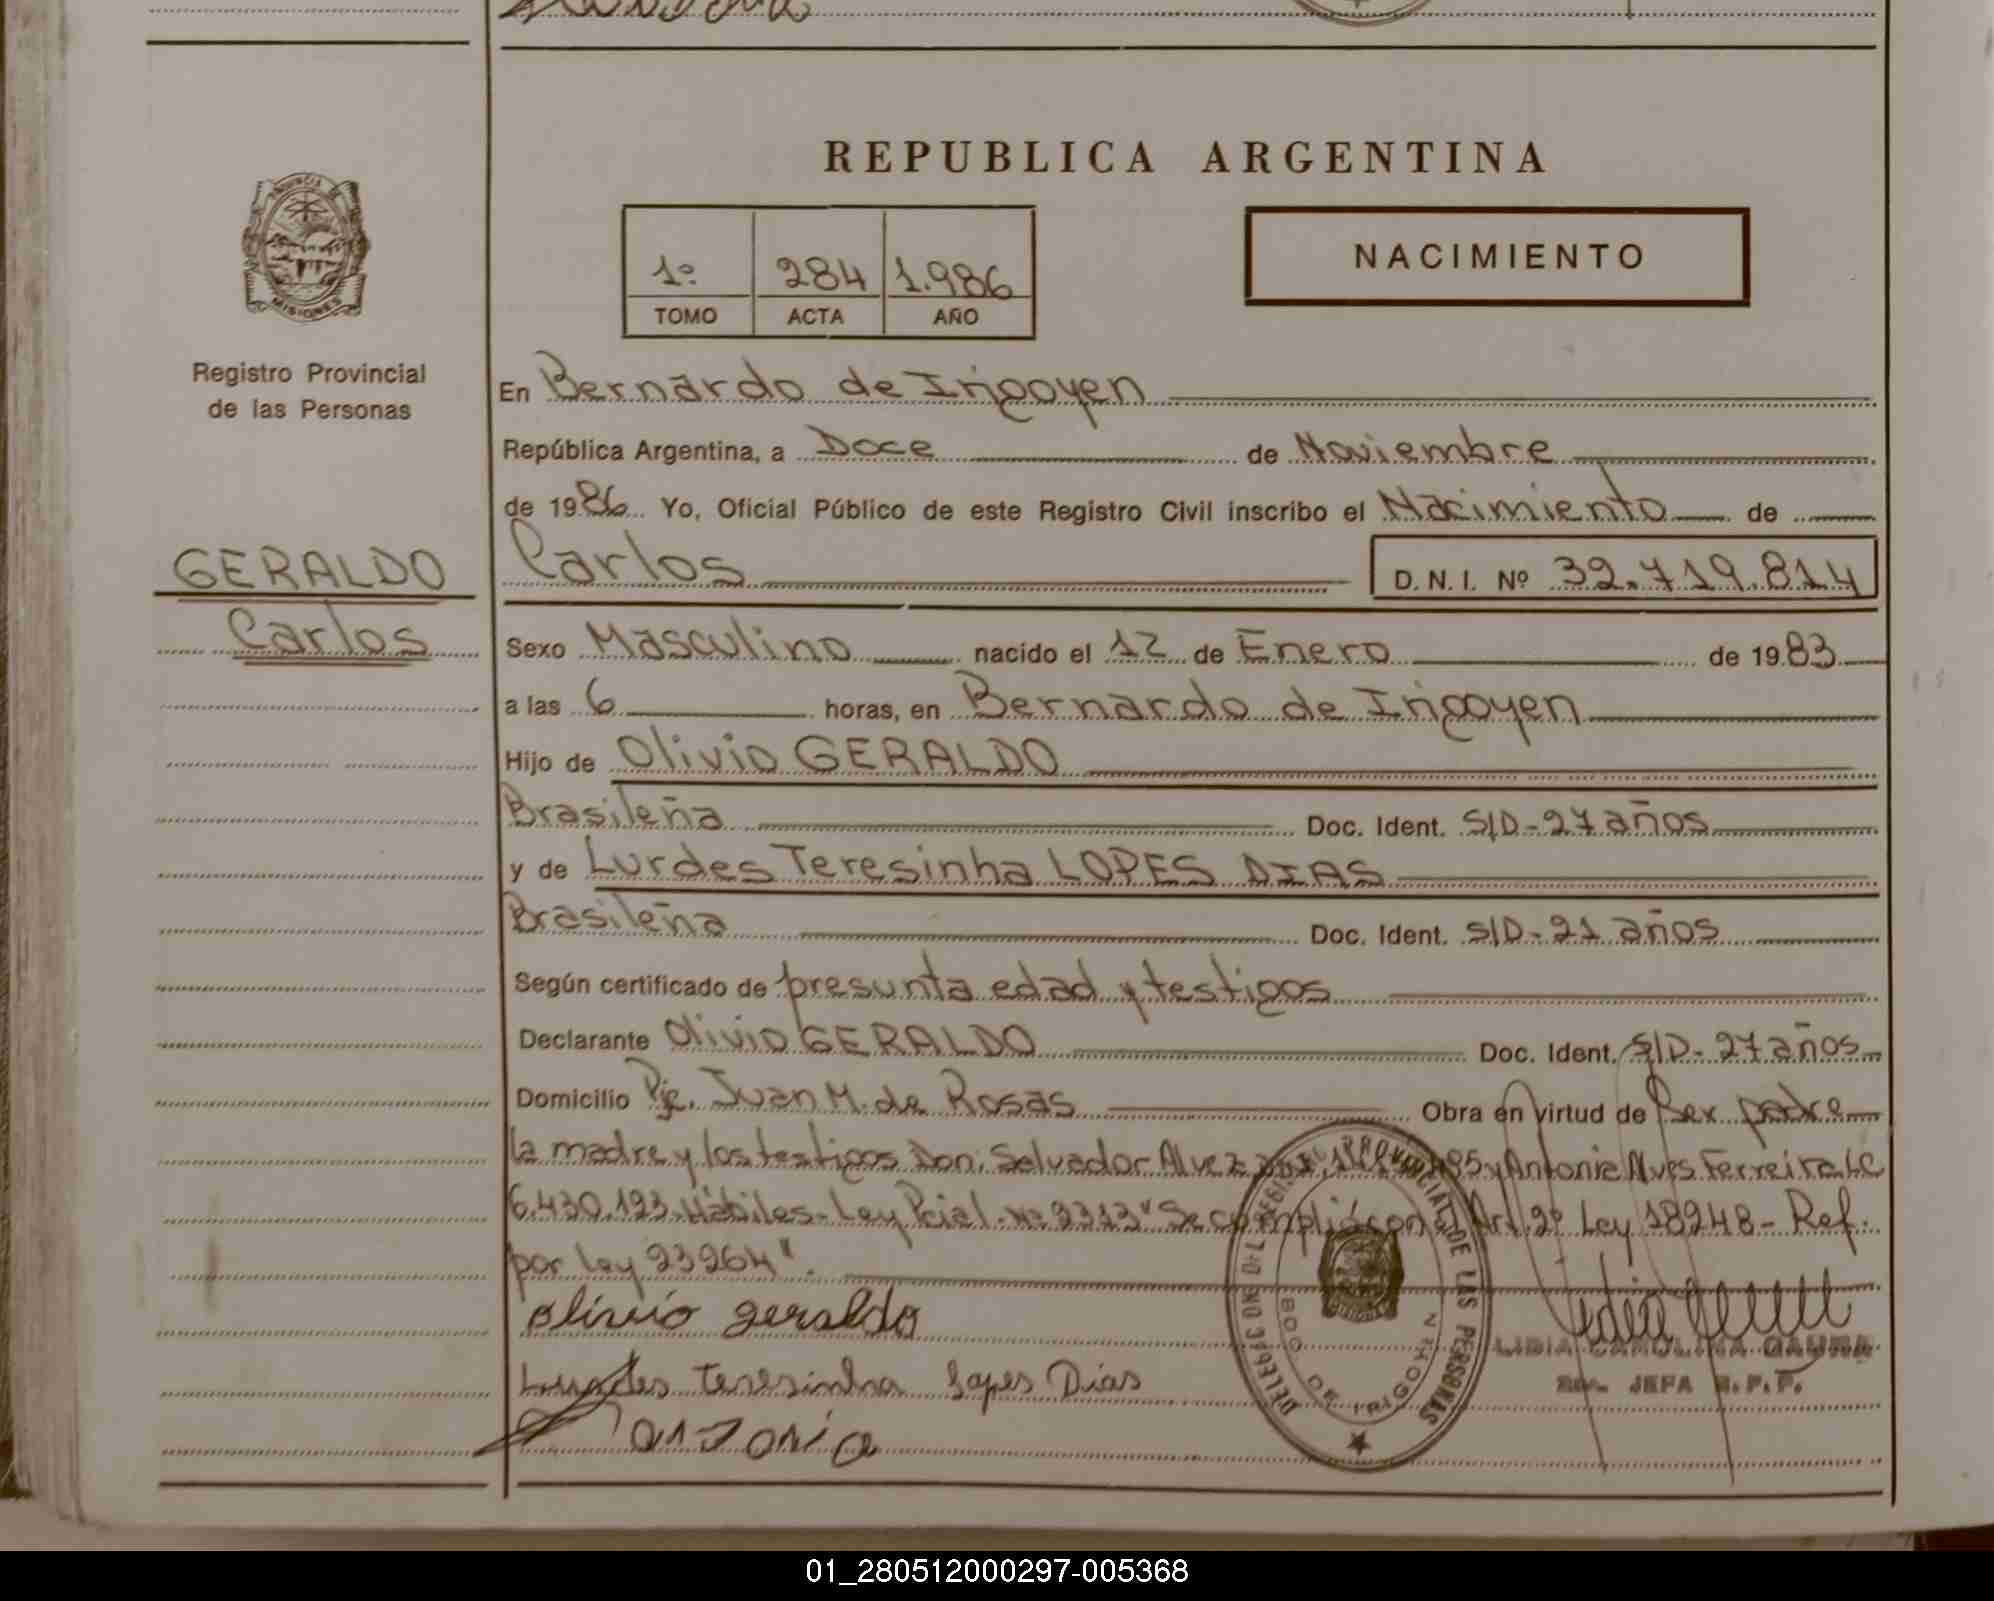 REPUBLICA ARGENTINA
NACIMIENTO
1º 284 1.986
TOMO ACTA AÑO
PROVINCIA DE
MISIONES
Registro Provincial
de las Personas
GERALDO
Carlos
En Bernardo de Irigoyen
República Argentina, a Doce de Noviembre
de 1986 Yo, Oficial Público de este Registro Civil inscribo el Nacimiento de
Carlos D.N.I. Nº 32.719.814
Sexo Masculino nacido el 12 de Enero de 1983
a las 6 horas, en Bernardo de Irigoyen
Hijo de Olivio GERALDO
Brasileña Doc. Ident. S/D-27 años
y de Lurdes Teresinha LOPES DIAS
Brasileña Doc. Ident. S/D-21 años
Según certificado de presunta edad y testigos
Declarante Olivio GERALDO Doc. Ident. S/D-27 años
Domicilio Pje. Juan M. de Rosas Obra en virtud de Ser padre
la madre y los testigos Don. Salvador Alvez y Antonia Alves Ferreira LC
6.430.193 Hábiles-Ley Pcial. Nº 2313 "Se cumplió con Art. 2º Ley 18248- Ref.
por ley 23264".
olivio geraldo
Lurdes Teresinha Lopes Dias
antonia
DELEGACION DEL REGISTRO PROVINCIAL DE LAS PERSONAS
BDO DE IRIGOYEN
LIDIA CAROLINA
JEFA R.P.P.
01_280512000297-005368